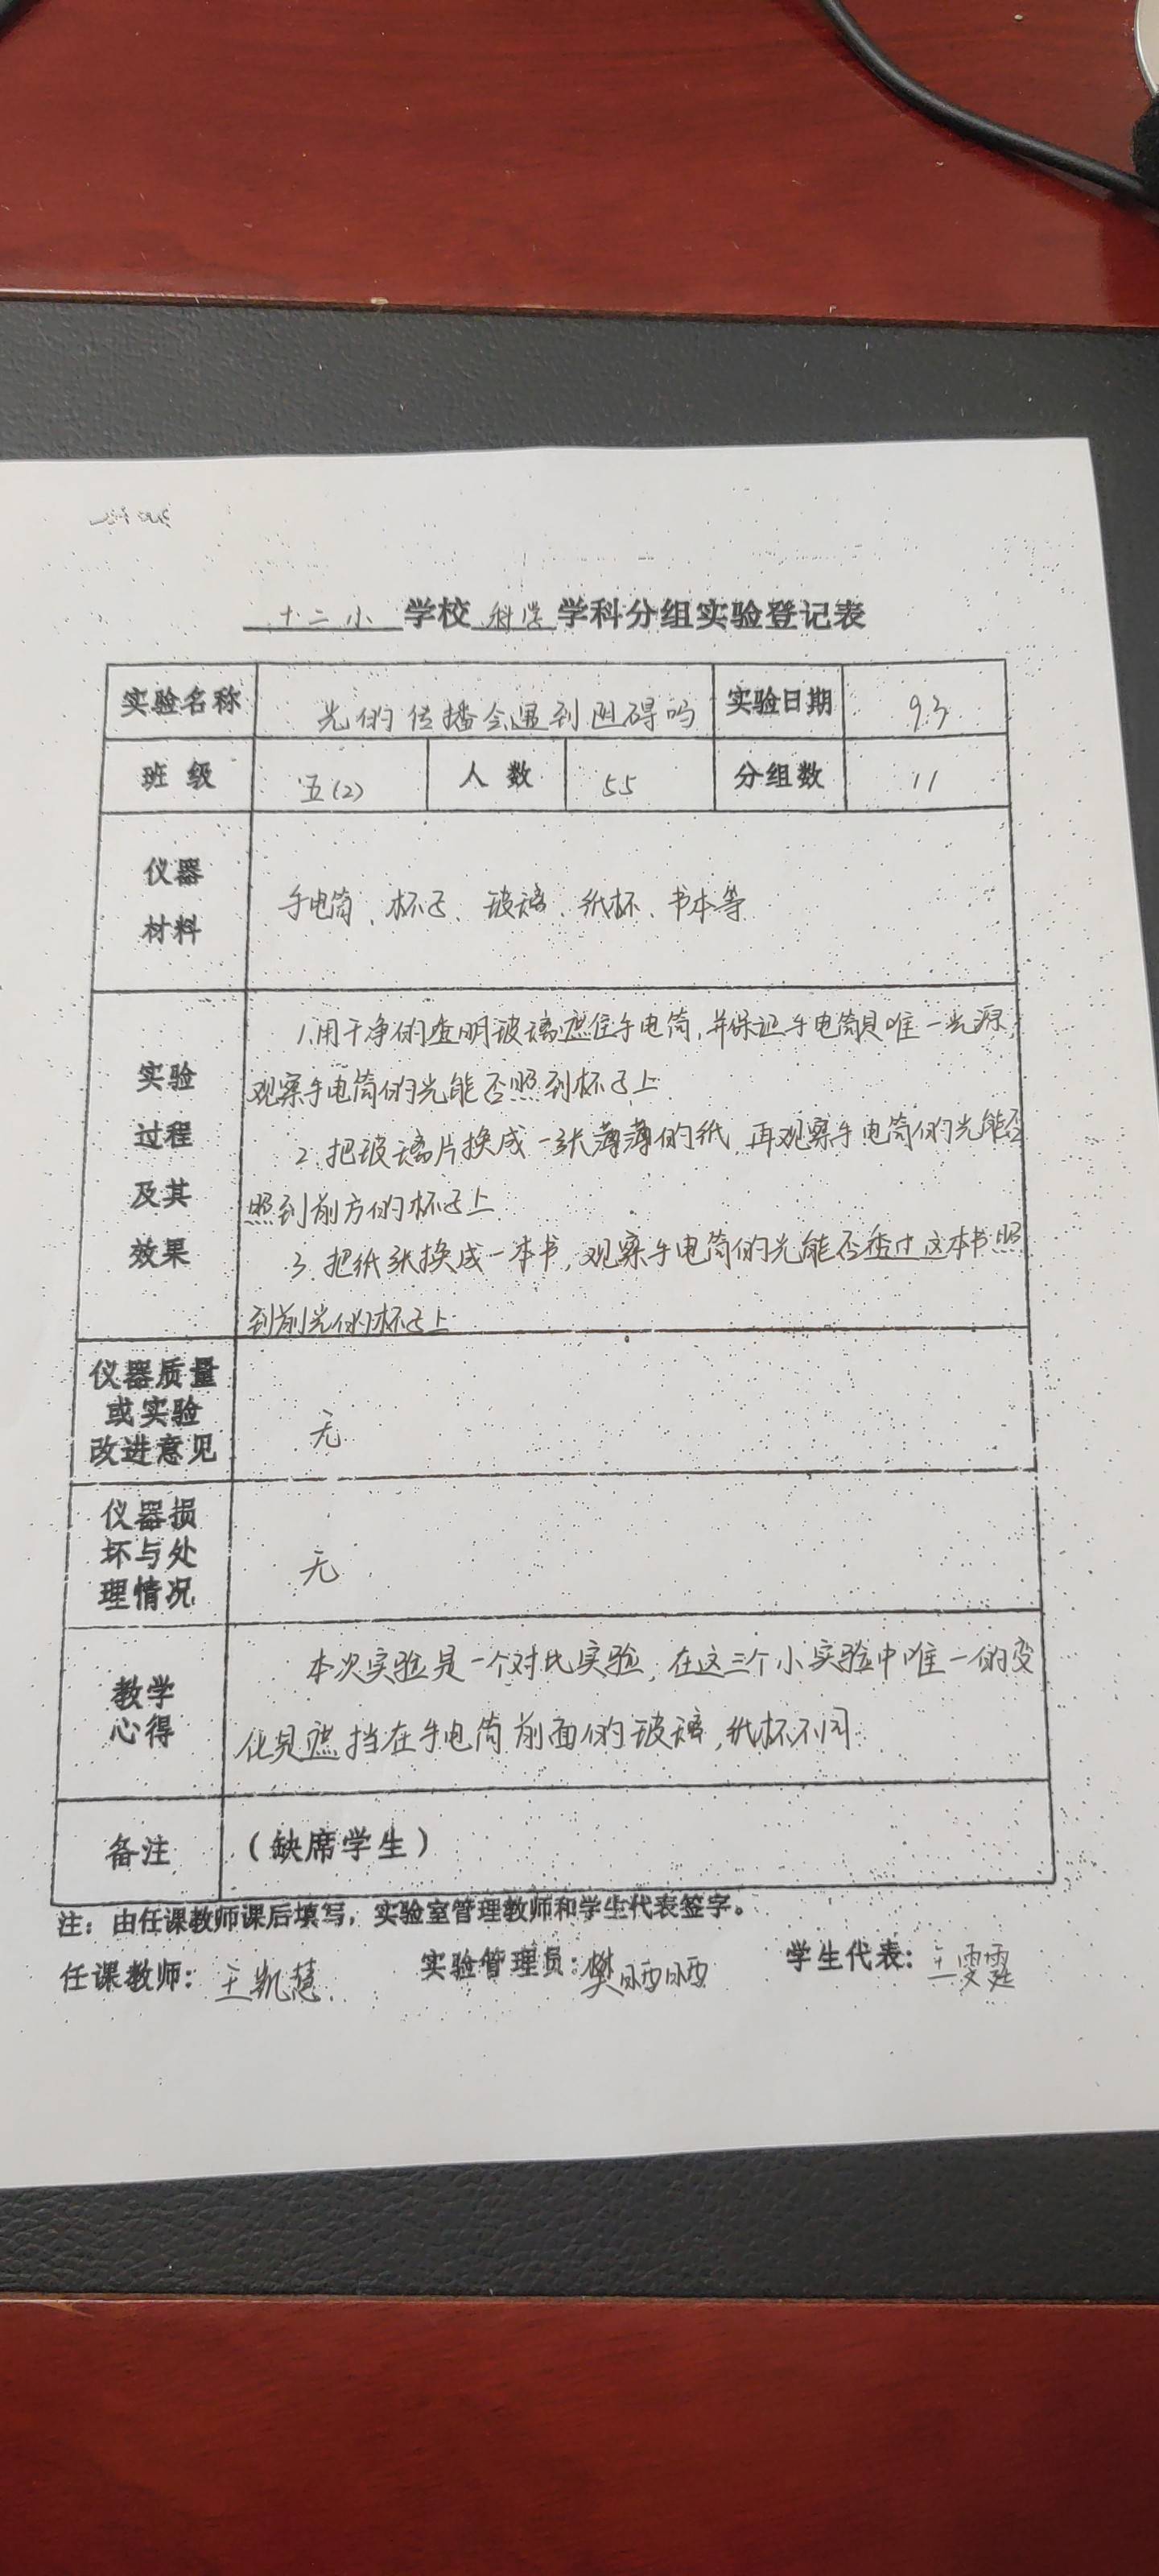 十二小 学校 科学 学科分组实验登记表
实验名称 光的传播会遇到阻碍吗 实验日期 9.3
班级 五(2) 人数 55 分组数 11
仪器
材料
手电筒、杯子、玻璃、纸杯、书本等
实验
过程
及其
效果
1.用干净的透明玻璃遮住手电筒,并保证手电筒是唯一光源,
观察手电筒的光能否照到杯子上.
2.把玻璃片换成一张薄薄的纸,再观察手电筒的光能否
照到前方的杯子上.
3.把纸张换成一本书,观察手电筒的光能否透过这本书照
到前光的杯子上
仪器质量
或实验
改进意见
无
仪器损
坏与处
理情况
无
教学
心得
本次实验是一个对比实验,在这三个小实验中唯一的变
化是遮挡在手电筒前面的玻璃,纸杯不同.
备注 (缺席学生)
注:由任课教师课后填写,实验室管理教师和学生代表签字。
任课教师:王凯慧 实验管理员:樊晒晒 学生代表:王雯霆